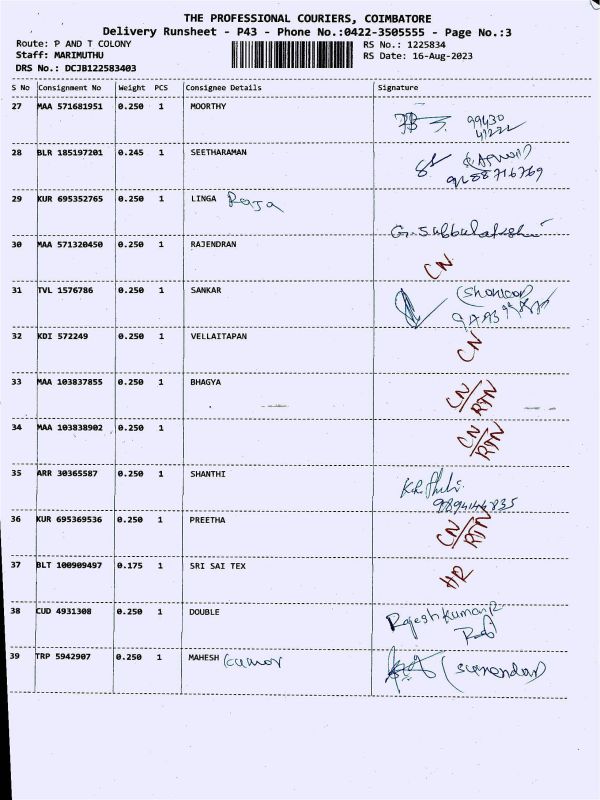 THE PROFESSIONAL COURIERS, COIMBATORE
Delivery Runsheet - P43 - Phone No.:0422-3505555 - Page No.:3
Route: P AND T COLONY RS No.: 1225834
Staff: MARIMUTHU RS Date: 16-Aug-2023
DRS No.: DCJB122583403
S No Consignment No Weight PCS Consignee Details Signature
27 MAA 571681951 0.250 1 MOORTHY 99430
41222
28 BLR 185197201 0.245 1 SEETHARAMAN
9288716769
29 KUR 695352765 0.250 1 LINGA Raja
G. Subbulakshmi
30 MAA 571320450 0.250 1 RAJENDRAN CN
31 TVL 1576786 0.250 1 SANKAR (Shankar)
32 KDI 572249 0.250 1 VELLAITAPAN CN
33 MAA 103837855 0.250 1 BHAGYA CN/RTN
34 MAA 103838902 0.250 1 CN/RTN
35 ARR 30365587 0.250 1 SHANTHI
9894144835
36 KUR 695369536 0.250 1 PREETHA CN/RTN
37 BLT 100909497 0.175 1 SRI SAI TEX
38 CUD 4931308 0.250 1 DOUBLE Rajesh Kumar R
39 TRP 5942907 0.250 1 MAHESH Kumar (Surendar)